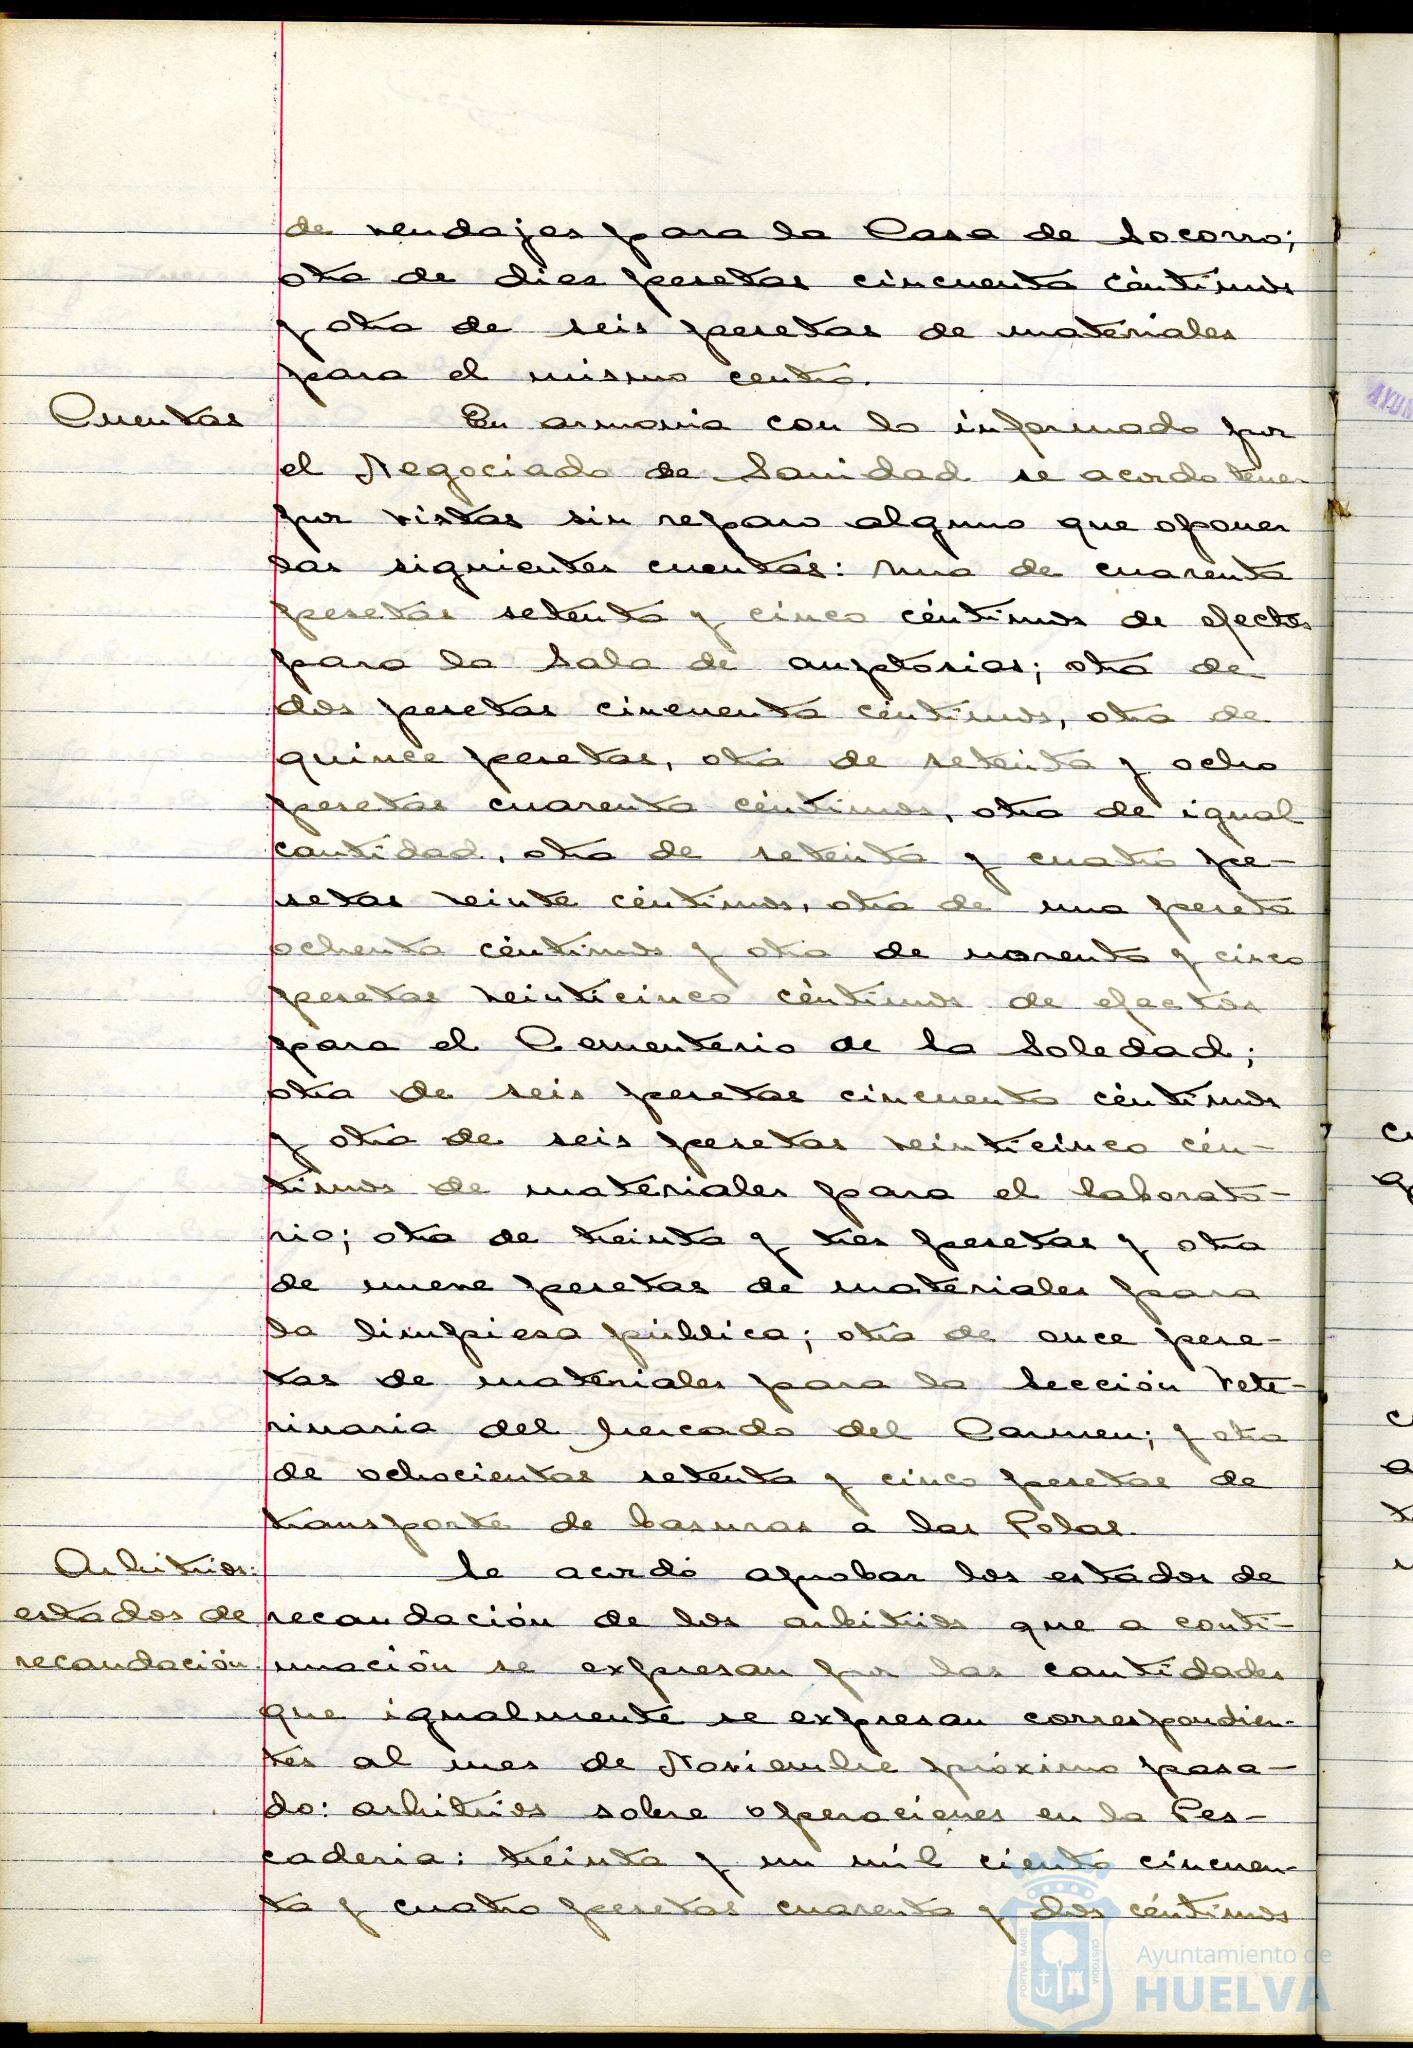 de vendajes para la Casa de Socorro;
otra de diez pesetas cincuenta céntimos
y otra de seis pesetas de materiales
para el mismo centro.
Cuentas
En armonia con lo informado por
el Negociado de Sanidad se acordo tener
por vistas sin reparo alguno que oponer
las siguientes cuentas: una de cuarenta
pesetas setenta y cinco céntimos de efectos
para la Sala de auptosias; otra de
dos pesetas cincuenta céntimos, otra de
quince pesetas, otra de setenta y ocho
pesetas cuarenta céntimos, otra de igual
cantidad, otra de setenta y cuatro pe-
setas veinte céntimos, otra de una peseta
ochenta céntimos y otra de noventa y cinco
pesetas veinticinco céntimos de efectos
para el Cementerio de la Soledad;
otra de seis pesetas cincuenta céntimos
y otra de seis pesetas veinticinco cén-
timos de materiales para el laborato-
rio; otra de treinta y tres pesetas y otra
de nueve pesetas de materiales para
la limpiesa pública; otra de once pese-
tas de materiales para la Sección Vete-
rinaria del Mercado del Carmen; y otra
de ochocientas setenta y cinco pesetas de
transporte de basuras a las Polas.
Arbitrios:
estados de
recaudación.
Se acordó aprobar los estados de
recaudación de los arbitrios que a conti-
nuación se expresan por las cantidades
que igualmente se expresan correspondien-
tes al mes de Noviembre próximo pasa-
do: arbitrios sobre operaciones en la Pes-
caderia: treinta y un mil ciento cincuen-
ta y cuatro pesetas cuarenta y dos céntimos
PORTUS MARIS CUSTODIA
Ayuntamiento de
HUELVA